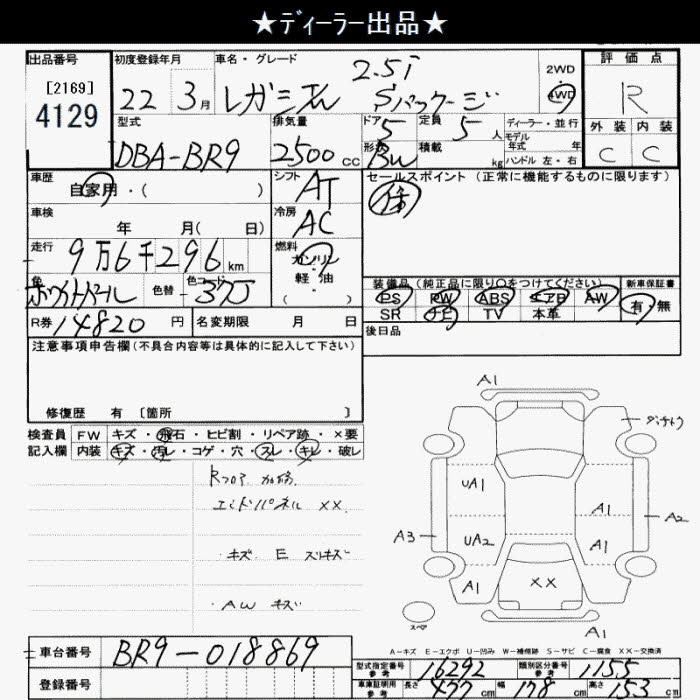 ★ディーラー出品★
出品番号 初度登録年月 車名・グレード 2WD 評価点
[2169] 2.5i 4WD
4129 22年3月 レガシィ Sパッケージ R
型式 排気量 ドア 5 定員 5人 ディーラー・並行 外装 内装
モデル年式 年
DBA-BR9 2500cc 形状 BW 積載 kg ハンドル 左・右 C C
車歴 自家用・( ) シフト AT セールスポイント (正常に機能するものに限ります)
車検 年 月( 日) 冷房 AC
走行 9万6千296km 燃料 ガソリン
軽・油
( )
色 ホワイトパール 色替 色コード 37J 装備品(純正品に限り○をつけてください) 新車保証書
PS PW ABS エアB AW 有・無
R券 14820円 名変期限 月 日 SR ナビ TV 本革
注意事項申告欄(不具合内容等は具体的に記入して下さい) 後日品
修復歴 有 [箇所 ]
検査員 FW キズ・飛石・ヒビ割・リペア跡・×要
記入欄 内装 キズ・汚レ・コゲ・穴・スレ・キレ・破レ
Rフロア
エンドパネル ××
・キズ E スリキズ
・AW キズ
A1
UA1 A1 A2
A3 UA2 A1
A1 ××
スペア
A1
A-キズ E-エクボ U-凹み W-補修跡 S-サビ C-腐食 ××-交換済
車台番号 BR9-018869
登録番号
型式指定番号 参考 16292 類別区分番号 参考 1155
車庫証明用 参考 長さ 477cm 幅 178cm 高さ 153cm